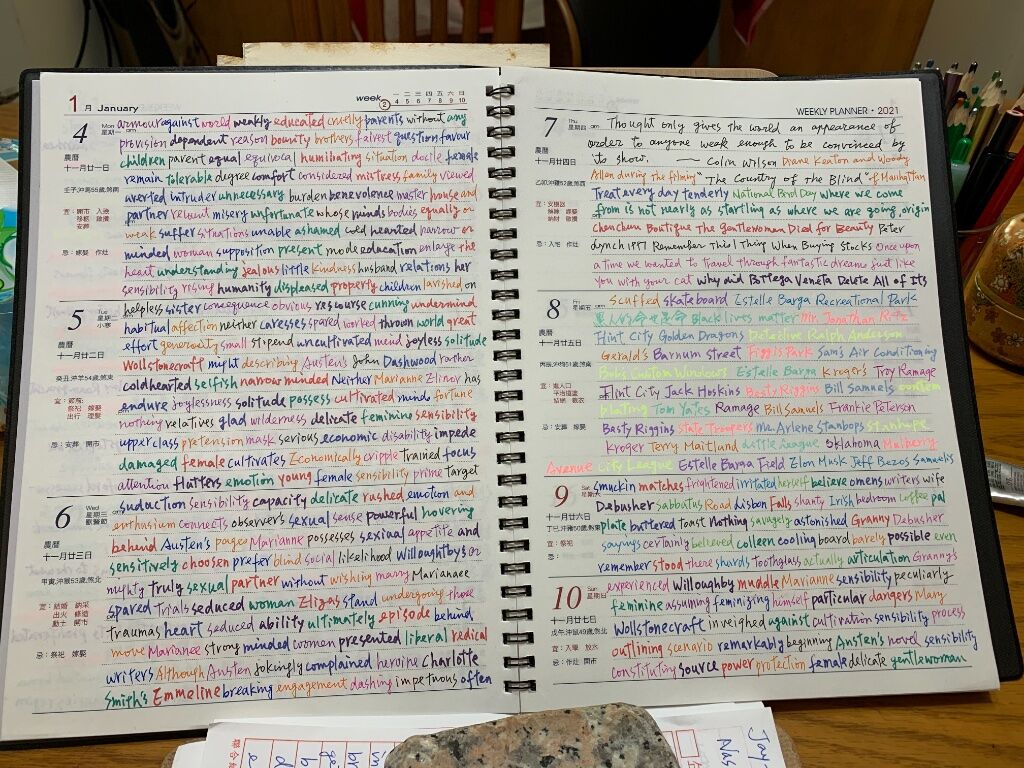 1月 January
week 2
一 二 三 四 五 六 日
4 5 6 7 8 9 10
4 Mon 星期一 am
armour against world weakly educated cruelly parents without any
provision dependent reason bounty brothers fairest question favour
農曆
十一月廿一日
children parent equal equivocal humiliating situation docile female
remain tolerable degree comfort considered mistress family viewed
averted intruder unnecessary burden benevolence master house and
partner misery unfortunate whose minds bodies equally or
weak suffer situations unable ashamed hearted narrow or
minded woman supposition present mode education enlarge the
heart understanding jealous little kindness husband relations her
sensibility rising humanity displeased property children lavished on
5 Tue 星期二 小寒
helpless sister consequence obvious resource cunning undermind
habitual affection neither caresses spared worked thrown world great
農曆
十一月廿二日
effort generosity small stipend uncultivated mind joyless solitude
Wollstonecraft might describing Austen's John Dashwood rather
coldhearted selfish narrow minded Neither Marianne Elinor has
endure joylessness solitude possess cultivated mind fortune
nothing relatives glad wilderness delicate feminine sensibility
upperclass pretension mask serious economic disability impede
damaged female cultivates Economically cripple trained focus
attention flatters emotion young female sensibility prime target
6 Wed 星期三
suduction sensibility capacity delicate rushed emotion and
enthusium connects observer's sexual sense powerful hovering
農曆
十一月廿三日
behind Austen's pages Marianne possesses sexual appetite and
sensitively choosen prefer blind social likelihood Willoughbys or
might Truly sexual partner without wishing marry Marianaee
spared Trials seduced woman Elizas stand undergoing those
traumas heart seduced ability ultimately episode behind
move Marianee strong minded women presented liberal redical
writers Although Austen jokingly complained heroine Charlotte
Smith's Emmeline breaking engagement dashing impetuous often
WEEKLY PLANNER • 2021
7 Thu 星期四 am
Thought only gives the world an appearance of
order to anyone weak enough to be convinced by
農曆
十一月廿四日
its show. — Colin Wilson Diane Keaton and Woody
Allen during the filming "The Country of the Blind" of Manhattan
Treat every day tenderly National Bird Day where we come
from is not nearly as startling as where we are going, origin
Chenchun Boutique The Gentlewomen Died for Beauty Peter
Lynch 1997 Remember This 1 Thing When Buying Stocks Once upon
a time we wanted to travel through fantastic dreams just like
You with your cat why did Bottega Veneta Delete All of Its
8 Fri 星期五
Scuffed skateboard Estelle Barga Recreational Park
黑人的命也是命 Black lives matter Mr. Jonathan Ritz
農曆
十一月廿五日
Flint City Golden Dragons Detective Ralph Anderson
Gerald's Barnum street Figgis Park Sam's Air Conditioning
Bobs Custom Windows Estelle Barga Kroger's Troy Ramage
Flint City Jack Hoskins Basty Riggins Bill Samuels
plating Tom Yates Ramage Bill Samuels Frankie Peterson
Basty Riggins State Troopers Ma Arlene Stanhops Stanhope
kroger Terry Maitland Little League Oklahoma Mulberry
Avenue City League Estelle Barga Field Elon Musk Jeff Bezos Samuels
9 Sat 星期六
smuckin matches frightened irritated herself believe omens writers wife
Debusher Sabbatus Road Lisbon Falls shanty Irish bedroom coffee pal
十一月廿六日
plate buttered toast Nothing savagely astonished Granny Debusher
sayings certainly believed colleen cooling board barely possible even
remember stood there shards toothglass actually articulation Granny's
10 Sun 星期日
experienced Willoughby muddle Marianne sensibility peculiarly
feminine assuming feminizing himself particular dangers Mary
十一月廿七日
Wollstonecraft inveighed against cultivation sensibility process
outlining scenario remarkably beginning Austen's novel sensibility
constituting source power protection female delicate gentlewoman